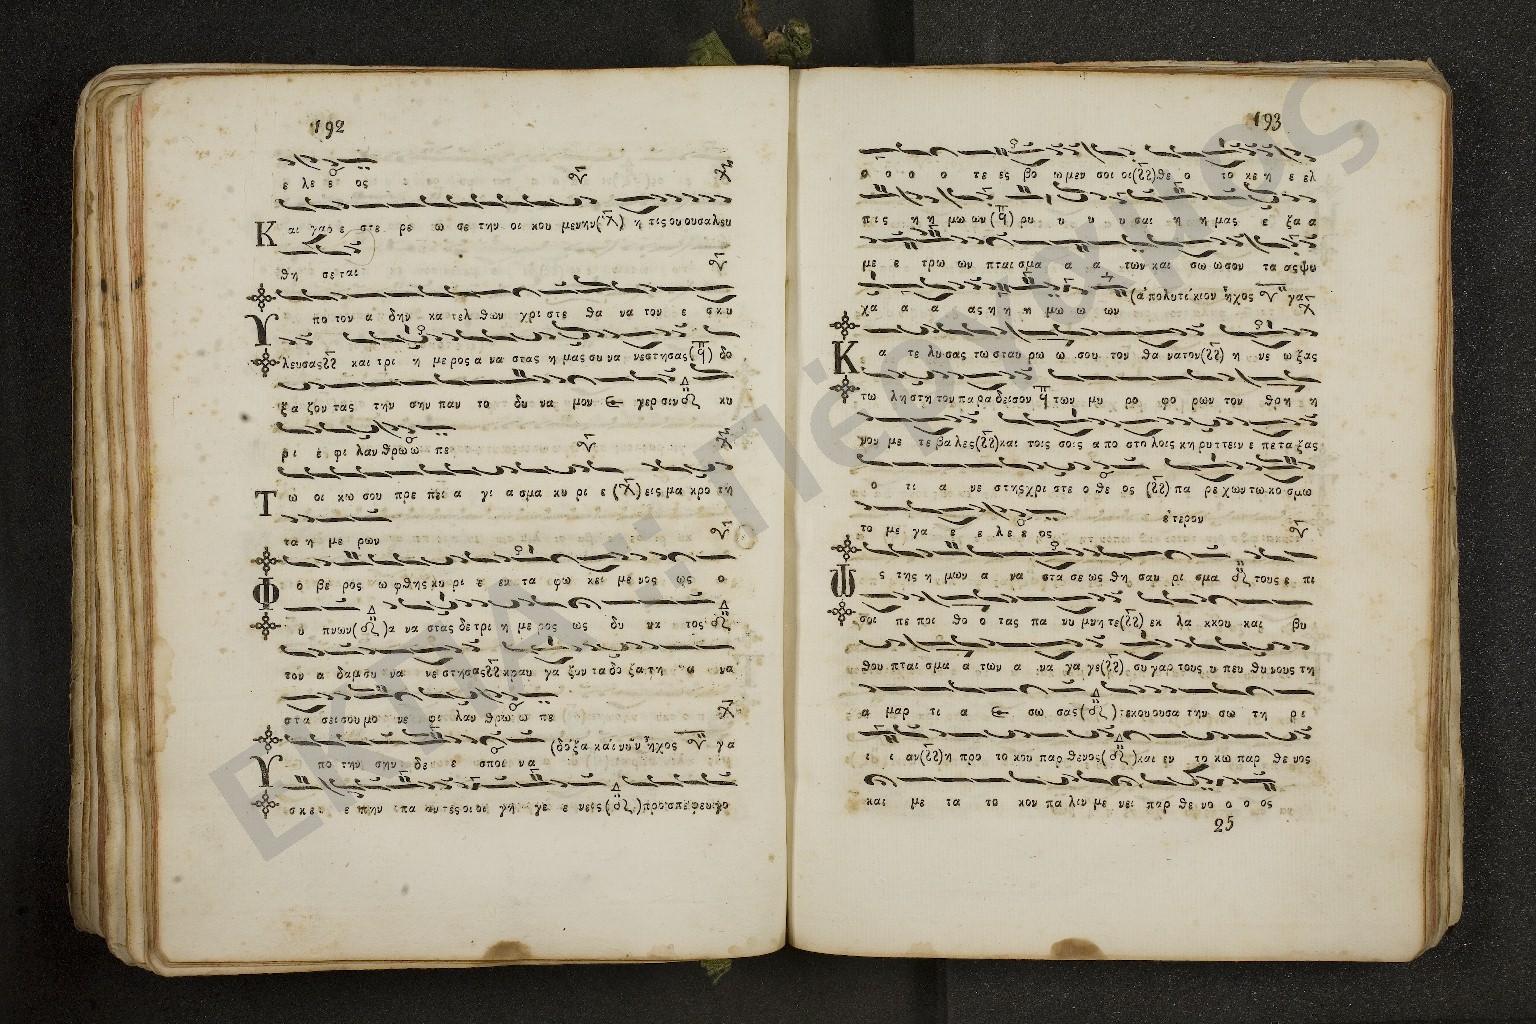 192
ε λε ε ος
Και γαρ ε στε ρε ω σε την οι κου μενην η τις ου ου σαλευ
θη σεται
Υ πο τον α δην κα τελ θων χρι στε θα να τον ε σκυ
λευσας και τρι η με ρος α να στας η μας συ να νεστησας δο
ξα ζον τας την σην παν το δυ να μον ε γερ σιν κυ
ρι ε φι λαν θρω ω πε
Τ ω οι κω σου πρε πει α γι α σμα κυ ρι ε εις μα κρο τη
τα η με ρων
Φ ο βε ρος ω φθης κυ ρι ε εν τα φω κει με νος ως ο
υ πνων α να στας δε τρι η με ρος ως δυ να τος
τον α δαμ συ να νε στησας κραυ γα ζον τα δο ξα τη α να
στα σει σου μο νε φι λαν θρω ω πε
Υ πο την σην δε ε σποι να (δόξα καὶ νῦν ἦχος γα
σκε ε πην πα αν τες οι οι γη γε ε νεις προσπεφευγο
193
ο ο ο ο τε ες βο ω μεν σοι οι θε ο το κε η ε ελ
πις η η μω ων ρυ υ υ υ σαι η η μας ε ξα α
με ε τρω ων πται σμα α α των και σω ω σον τα ας ψυ
χα α α ας η η η μω ω ων (ἀπολυτίκιον ἦχος γα
Κ α τε λυ σας τω σταυ ρω ω σου τον θα νατον η νε ω ξας
τω λη στη τον παρα δεισον των μυ ρο φο ρων τον θρη η
νον με τε βα λες και τοις σοις α πο στο λοις κη ρυττειν ε πε τα ξας
ο τι α νε στης χρι στε ο θε ος πα ρε χων τω κο σμω
το με γα ε ε λε ε ος ἕτερον
Ω ς της η μων α να στα σε ως θη σαυ ρι σμα τους ε πι
σοι πε ποι θο ο τας πα νυ μνη τε εκ λα κκου και βυ
θου πται σμα α των α να γα γε συ γαρ τους υ πευ θυ νους τη
α μαρ τι α ε σω σας τεκουουσα την σω τη ρι
ι ι αν η προ το κου παρ θενος και εν το κω παρ θε νος
και με τα το κον πα λιν με νει παρ θε νο ο ο ος
25